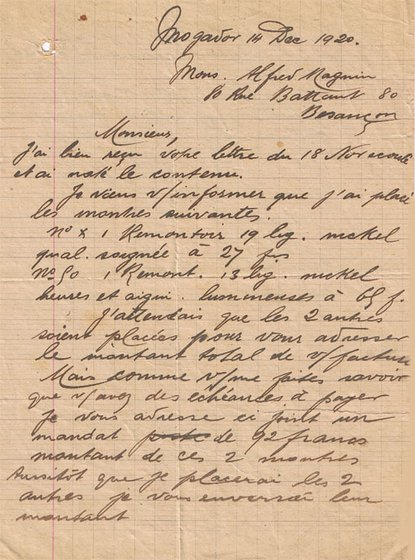 Mogador 14 Dec 1920.
Mons. Alfred Magnin
Rue Battant 80
Besançon
Monsieur,
J'ai bien reçu votre lettre du 18 Nov ecoulé
et ai noté le contenu.
Je viens v/informer que j'ai placé
les montres suivantes.
No X 1 Remontoir 19 lig. nickel
qual. soignée à 27 frs
No 50 1 Remont. 13 lig. nickel
heures et aigui. lumineuses à 65 f.
J'attendais que les 2 autres
soient placées pour vous adresser
le montant total de v/facture
Mais comme v/me faites savoir
que v/avez des echéances à payer
je vous adresse ci joint un
mandat poste de 92 francs
montant de ces 2 montres
Aussitôt que je placerai les 2
autres je vous enverrai leur
montant